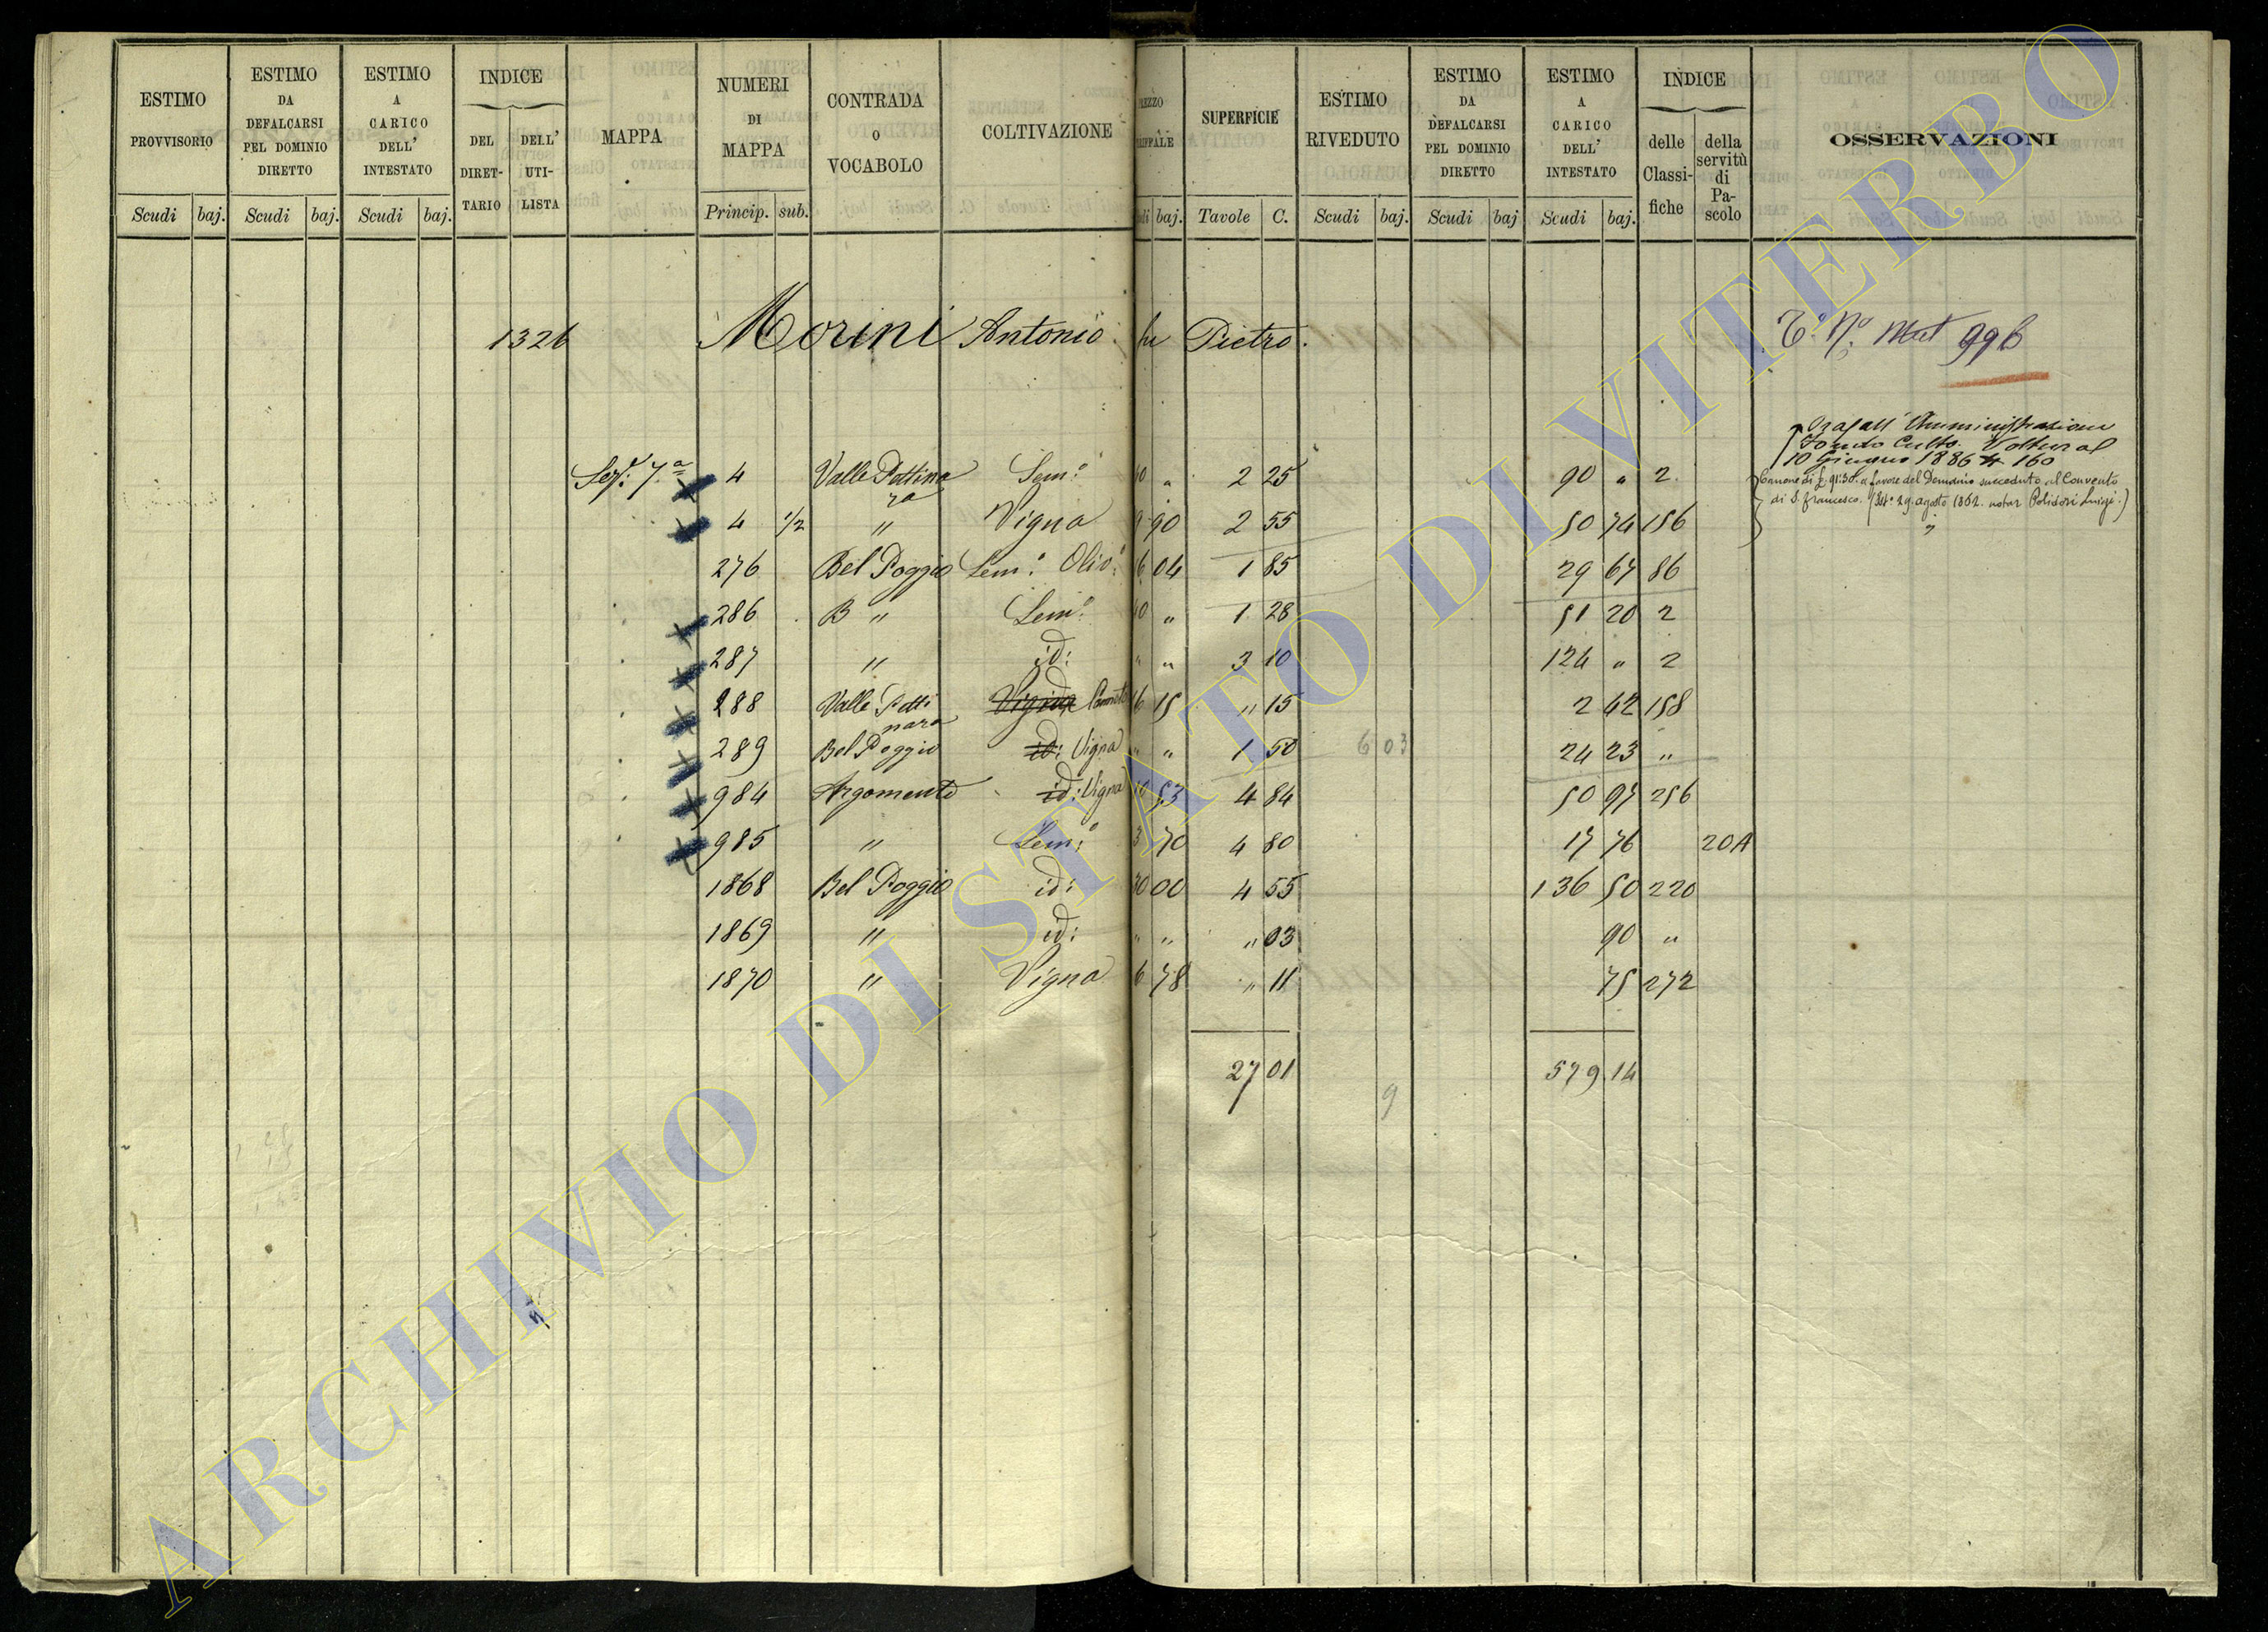 ESTIMO PROVVISORIO
ESTIMO DA DEFALCARSI PEL DOMINIO DIRETTO
ESTIMO A CARICO DELL' INTESTATO
INDICE
DEL DIRET-TARIO
DELL' UTI-LISTA
MAPPA
NUMERI DI MAPPA
CONTRADA O VOCABOLO
COLTIVAZIONE
SUPERFICIE
ESTIMO RIVEDUTO
ESTIMO DA DEFALCARSI PEL DOMINIO DIRETTO
ESTIMO A CARICO DELL' INTESTATO
INDICE
delle Classi-fiche
della servitù di Pa-scolo
OSSERVAZIONI
Scudi baj. Scudi baj. Scudi baj. Princip. sub. baj. Tavole C. Scudi baj. Scudi baj Scudi baj.
1326 Morini Antonio fu Pietro.
Mat 996
Amministrazione
Fondo Culto. Voltura al
10 Giugno 1886 160
Sez. 7a 4 Valle Pettina Sem.o " 2 25 90 " 2
ra
Canone di £ 91:30. a favore del Demanio succeduto al Convento
di S. Francesco. 29. agosto 1862. notar Polidori Luigi.)
4 1/2 " Vigna 90 2 55 50 74 156 "
276 Bel Poggio Sem.o Olio.o 6 04 1 85 29 67 86
286 B " Sem.o " 1 28 51 20 2
287 " id: " " 3 10 124 " 2
288 Valle Petti Vigna Canneto 16 15 " 15 2 42 158
nara
289 Bel Poggio id: Vigna " " 1 50 6 03 24 23 "
984 Argomento id: Vigna 10 53 4 84 50 97 256
985 " Sem.o 3 70 4 80 17 76 20A
1868 Bel Poggio id: 30 00 4 55 136 50 220
1869 " id: " " " 03 90 "
1870 " Vigna 6 78 " 11 75 272
27 01 579 14
9
ARCHIVIO DI STATO DI VITERBO